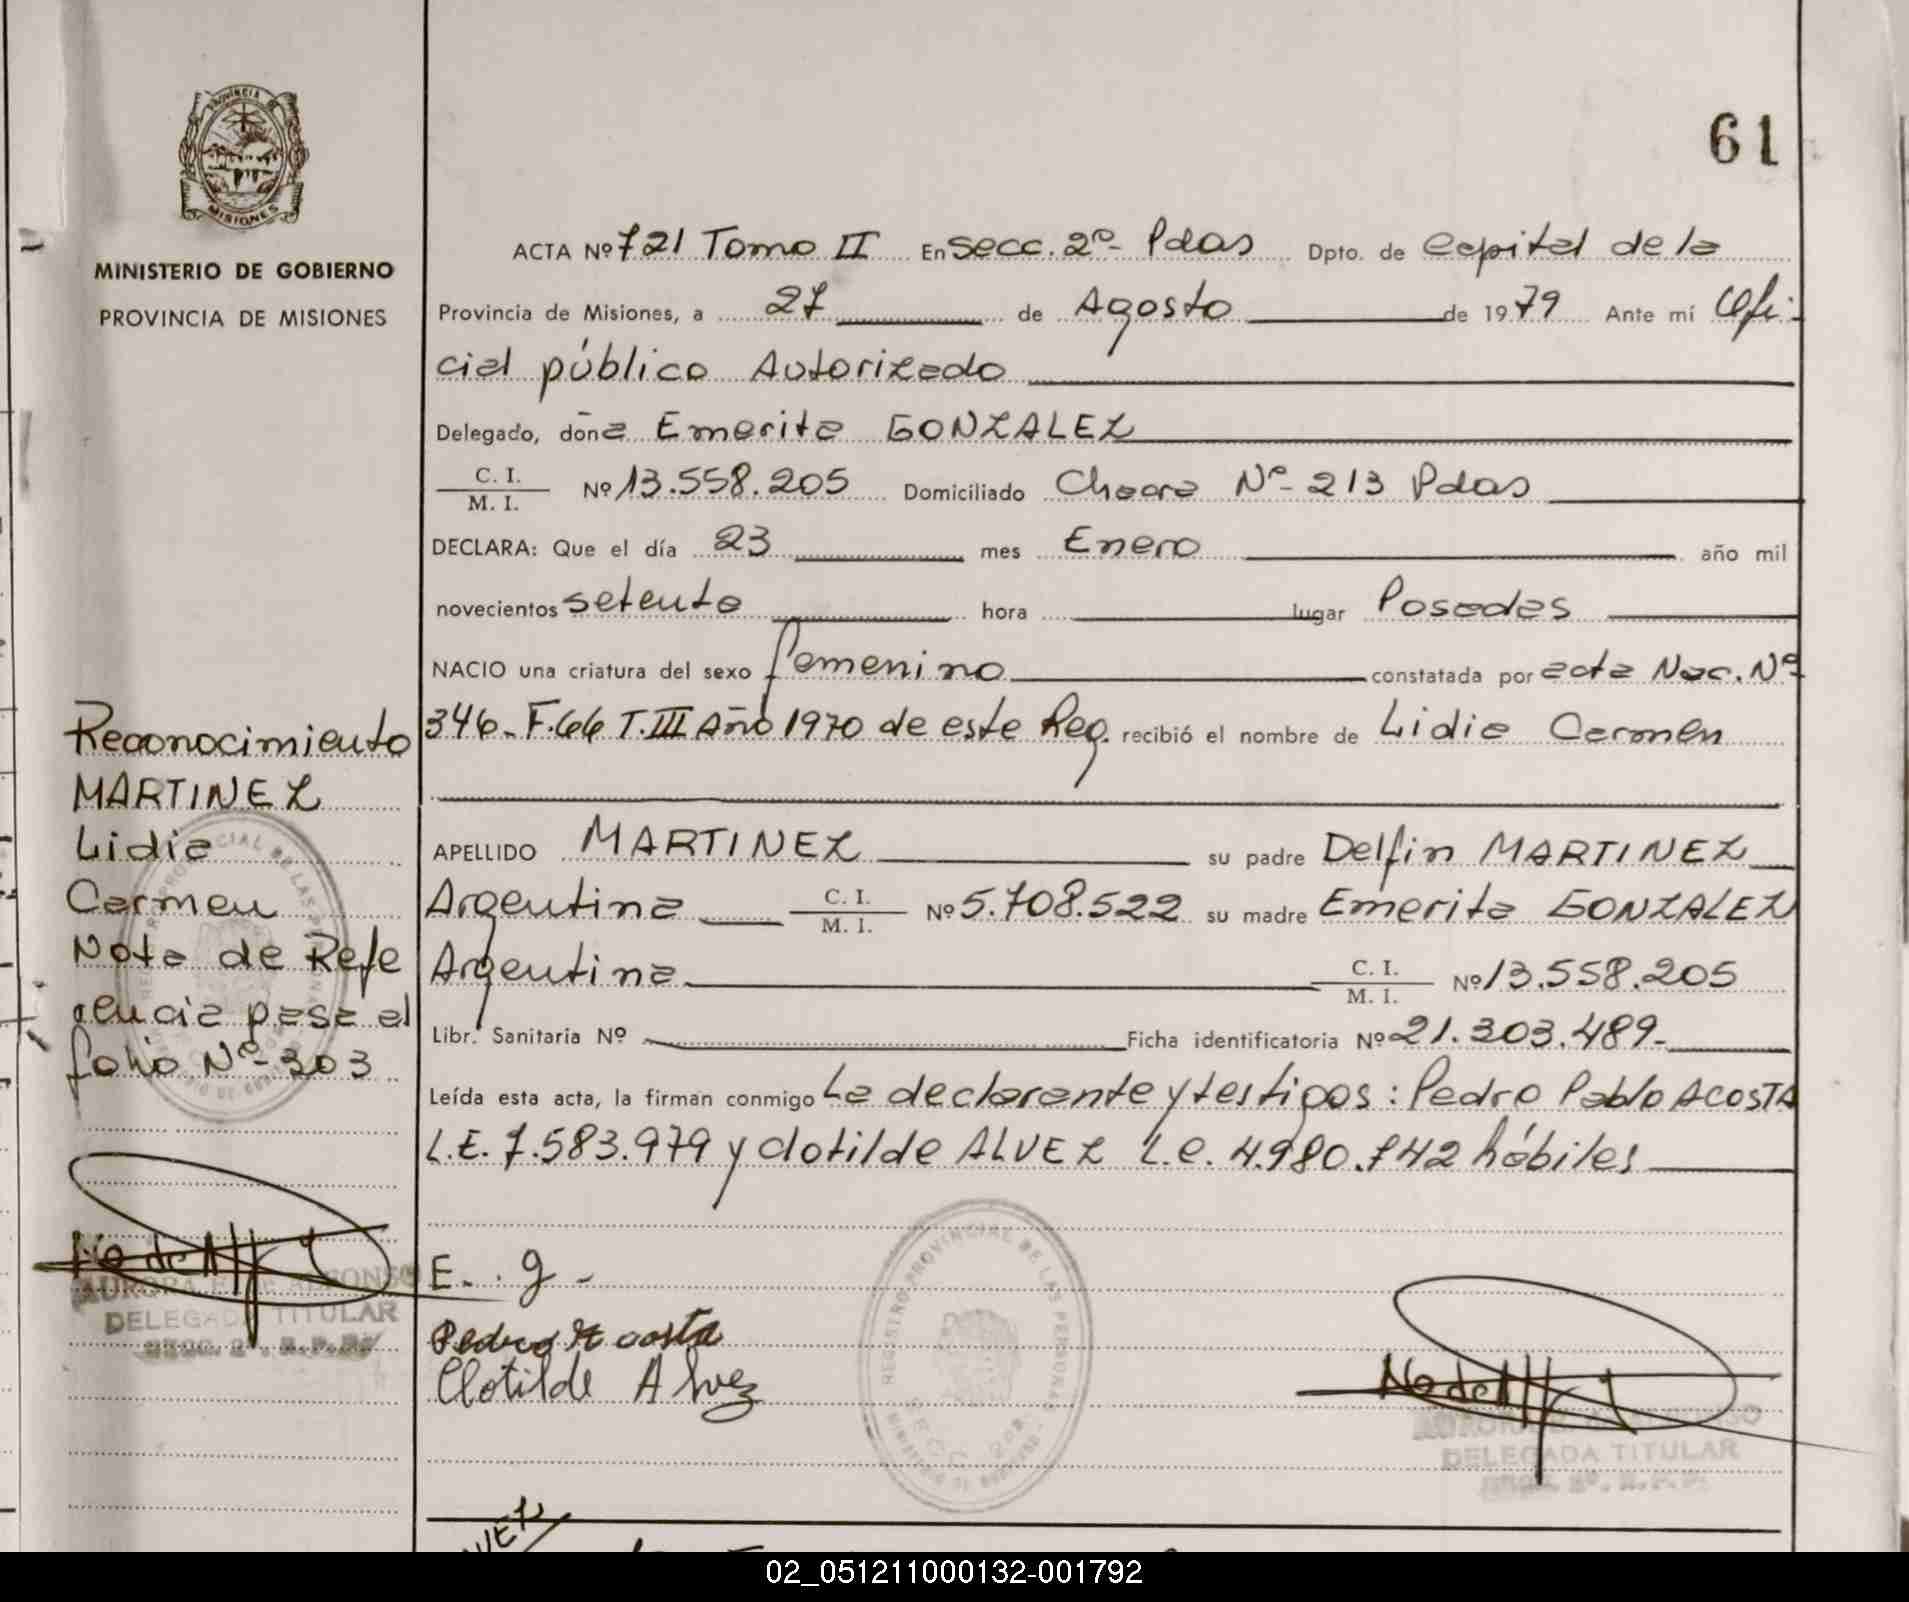 61
PROVINCIA DE
MISIONES
MINISTERIO DE GOBIERNO
PROVINCIA DE MISIONES
ACTA Nº 721 Tomo II En Secc. 2ª Pdas Dpto. de Capital de la
Provincia de Misiones, a 27 de Agosto de 1979 Ante mí Ofi-
cial público Autorizado
Delegado, doña Emerita GONZALEZ
C. I.
M. I. Nº 13.558.205 Domiciliado Chacra Nº 213 Pdas
DECLARA: Que el día 23 mes Enero año mil
novecientos setenta hora lugar Posadas
NACIO una criatura del sexo femenino constatada por acta Nac. Nº
346- F.66 T.III Año 1970 de este Reg. recibió el nombre de Lidia Carmen
APELLIDO MARTINEZ su padre Delfin MARTINEZ
Argentina C. I.
M. I. Nº 5.708.522 su madre Emerita GONZALEZ
Argentina C. I.
M. I. Nº 13.558.205
Libr. Sanitaria Nº Ficha identificatoria Nº 21.303.489-
Leída esta acta, la firman conmigo La declarante y testigos: Pedro Pablo ACOSTA
L.E. 7.583.979 y Clotilde ALVEZ L.e. 4.980.742 hábiles
E. g-
Pedro Acosta
Clotilde Alvez
REGISTRO PROVINCIAL DE LAS PERSONAS
SECC 2DA
MINISTERIO DE GOBIERNO
DELEGADA TITULAR
Reconocimiento
MARTINEZ
Lidia
Carmen
Nota de Refe
rencia pasa al
folio Nº-303
AURORA E. de ALFONSO
DELEGADA TITULAR
SECC. 2ª. R.P.P.
02_051211000132-001792